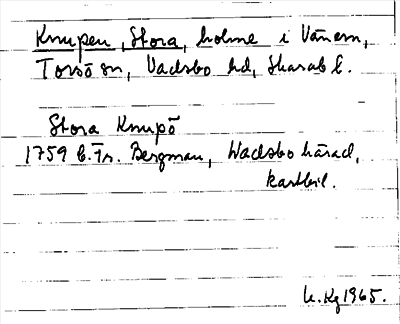 Knupen, Stora, holme i Vänern,
Torsö sn, Vadsbo hd, Skarab l.
Stora Knupö
1759 C. Fr. Bergman, Wadsbo härad,
kartbil.
K. Kg 1965.